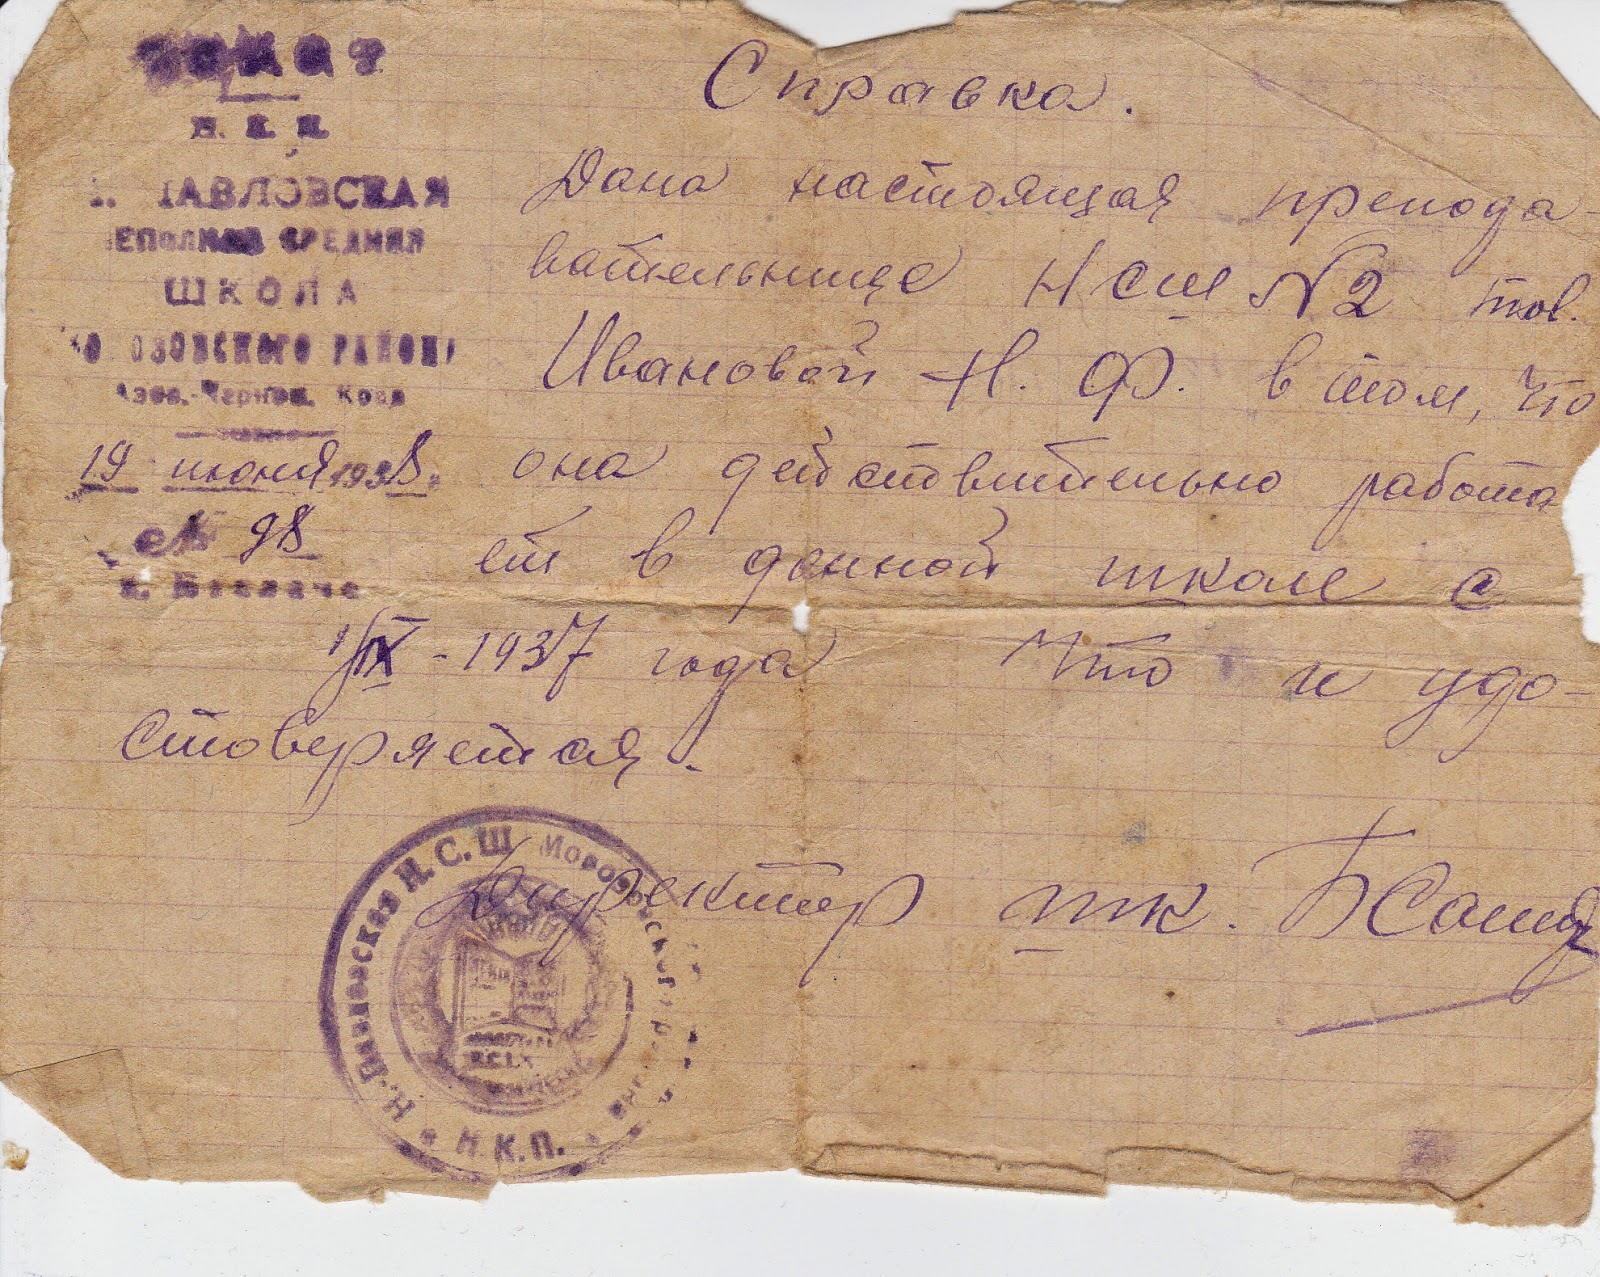 Н. К. П.
ПАВЛОВСКАЯ
НЕПОЛНАЯ СРЕДНЯЯ
ШКОЛА
РАЙОНА
Азов.-Черном. Края
19 июня 1938
№ 98
Справка.
Дана настоящая препода-
вательнице НСШ №2 тов.
Ивановой Н. Ф. в том, что
она действительно работа
ет в данной школе с
1/IX - 1937 года Что и удо-
стоверяется.
Директор шк.
Н.-Павловская Н.С.Ш. Морозовского района
Н.К.П.